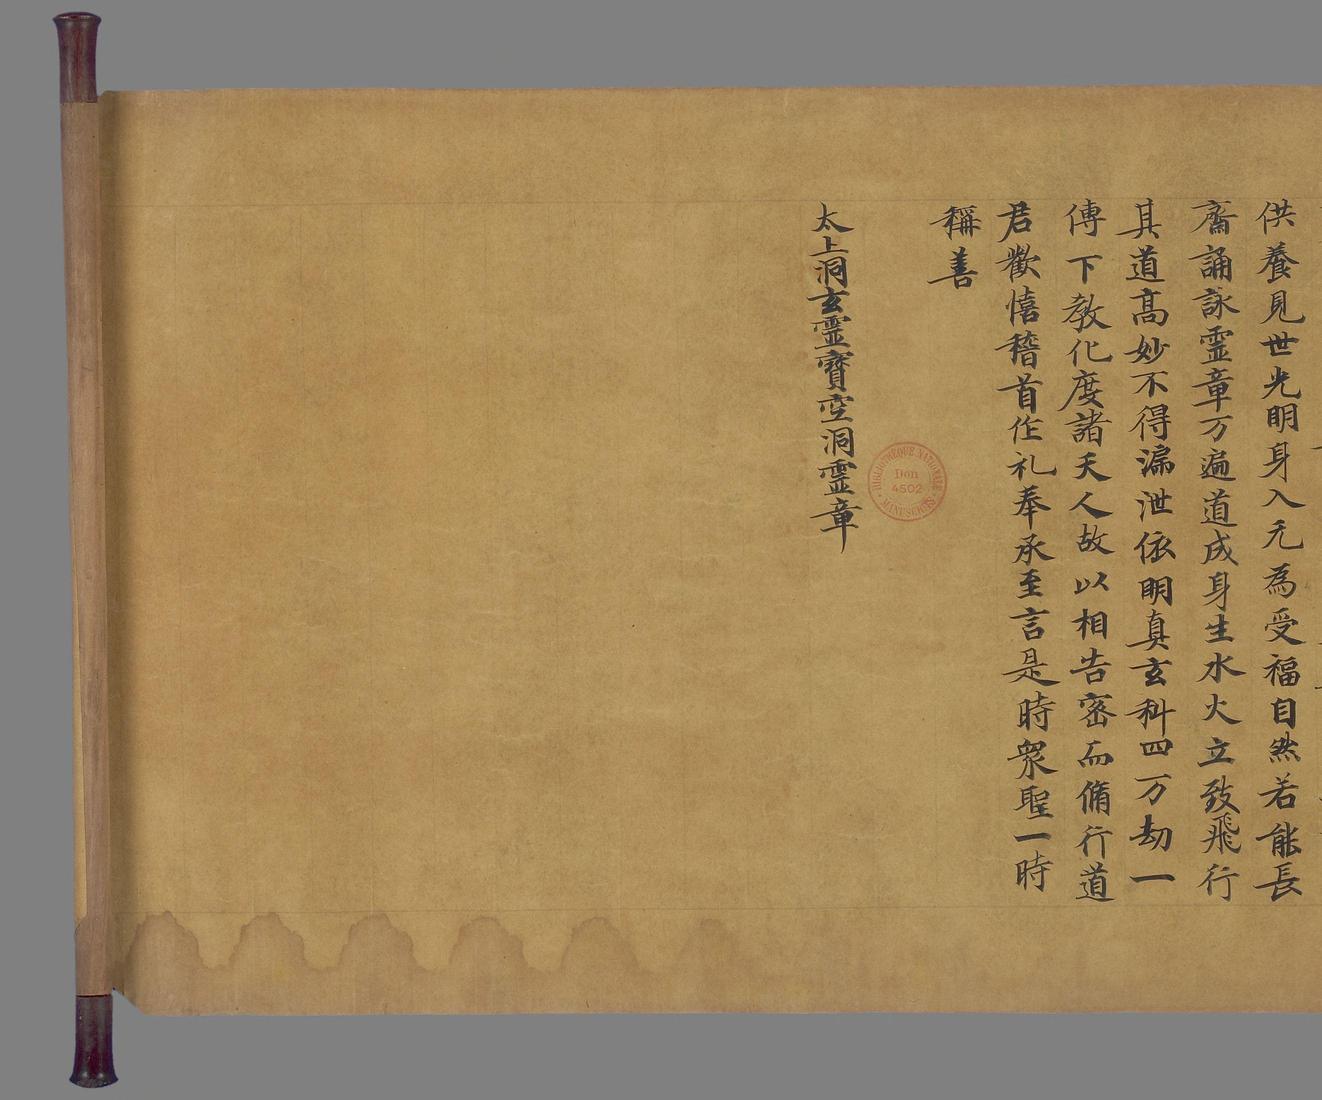 供養見世光明身入无為受福自然若能長
齋誦詠霊章万遍道成身生水火立致飛行
其道高妙不得漏泄依明真玄科四万劫一
傳下教化度諸天人故以相告密而脩行道
君歡憘稽首作礼奉承至言是時衆聖一時
稱善
太上洞玄霊寶空洞霊章
BIBLIOTHEQUE NATIONALE
Don
4502
MANUSCRITS